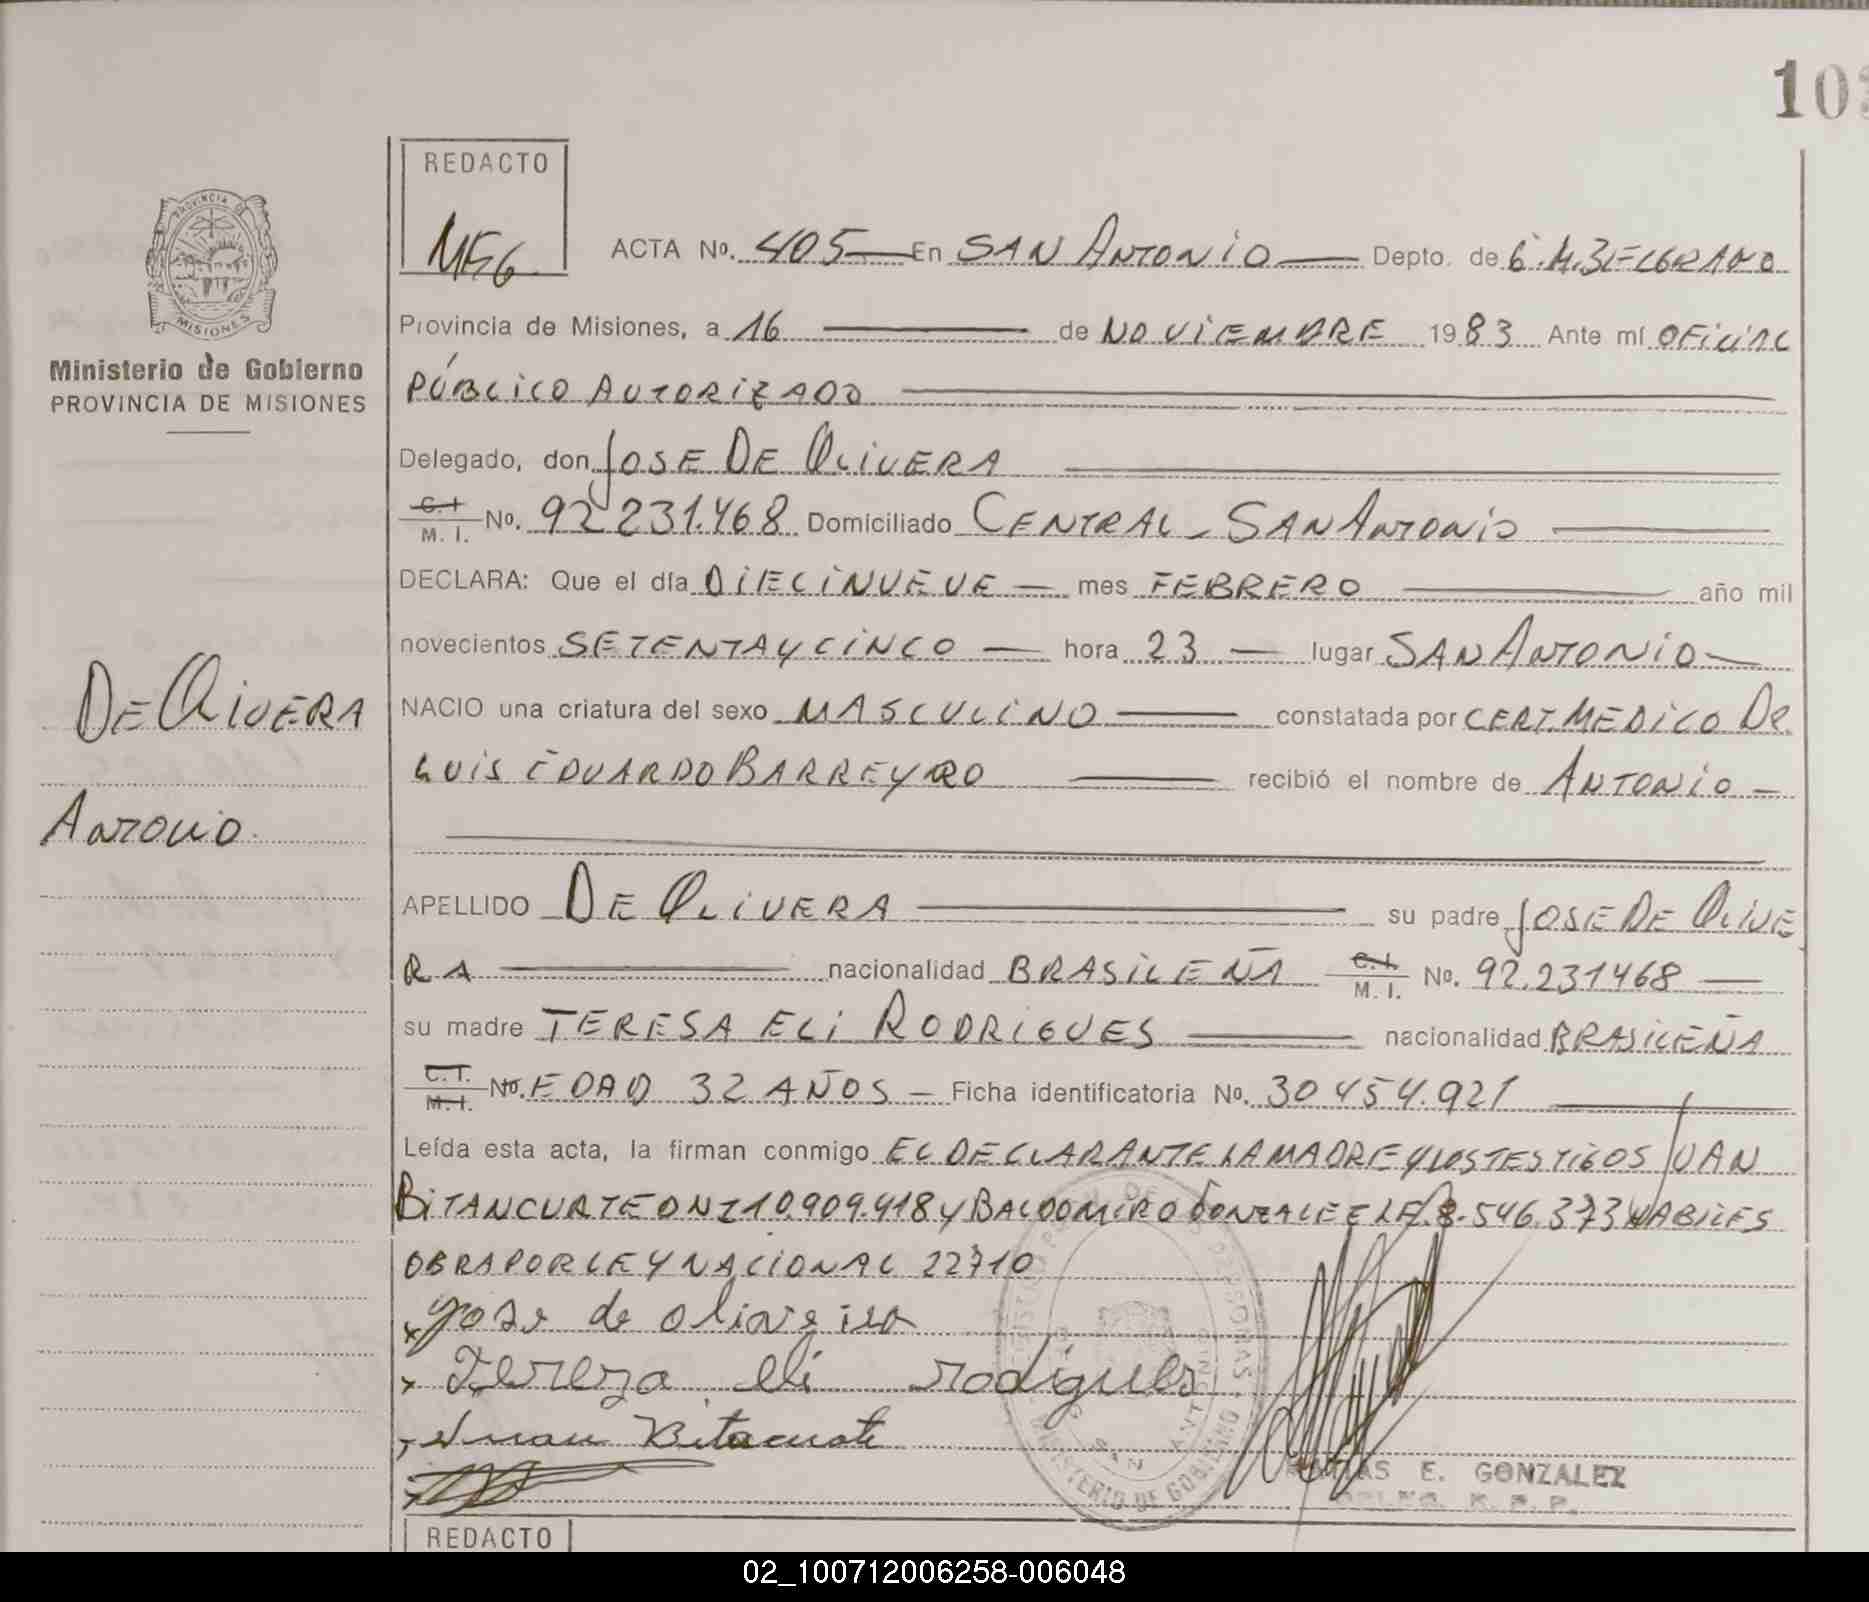 103
REDACTO
MEG
PROVINCIA DE MISIONES
Ministerio de Gobierno
PROVINCIA DE MISIONES
ACTA No. 405 En SAN ANTONIO Depto. de G.M.BELGRANO
Provincia de Misiones, a 16 de NOVIEMBRE 1983 Ante mí OFICIAL
PÚBLICO AUTORIZADO
Delegado, don JOSE DE OLIVERA
C.I. M. I. No. 92 231.468 Domiciliado CENTRAL - SAN ANTONIO
DECLARA: Que el día DIECINUEVE mes FEBRERO año mil
novecientos SETENTA Y CINCO hora 23 lugar SAN ANTONIO
NACIO una criatura del sexo MASCULINO constatada por CERT. MEDICO DR.
LUIS EDUARDO BARREYRO recibió el nombre de ANTONIO
APELLIDO DE OLIVERA su padre JOSE DE OLIVE
RA nacionalidad BRASILEÑA C.I. M. I. No. 92.231468
su madre TERESA ELI RODRIGUES nacionalidad BRASILEÑA
C.I. M.I. No. EDAD 32 AÑOS - Ficha identificatoria No. 30 454.921
Leída esta acta, la firman conmigo EL DECLARANTE LA MADRE Y LOS TESTIGOS JUAN
BITANCURTE DNI 10.909.418 Y BALDOMIRO GONZALEZ LE. 8.546.373 HABILES
OBRA POR LEY NACIONAL 22710
x Jose de oliveira
x Tereza eli rodigues
x Juan Bitancurte
DE OLIVERA
ANTONIO
SAN ANTONIO
MINISTERIO DE GOBIERNO
E. GONZALEZ
DELEG. R. P. P.
REDACTO
02_100712006258-006048